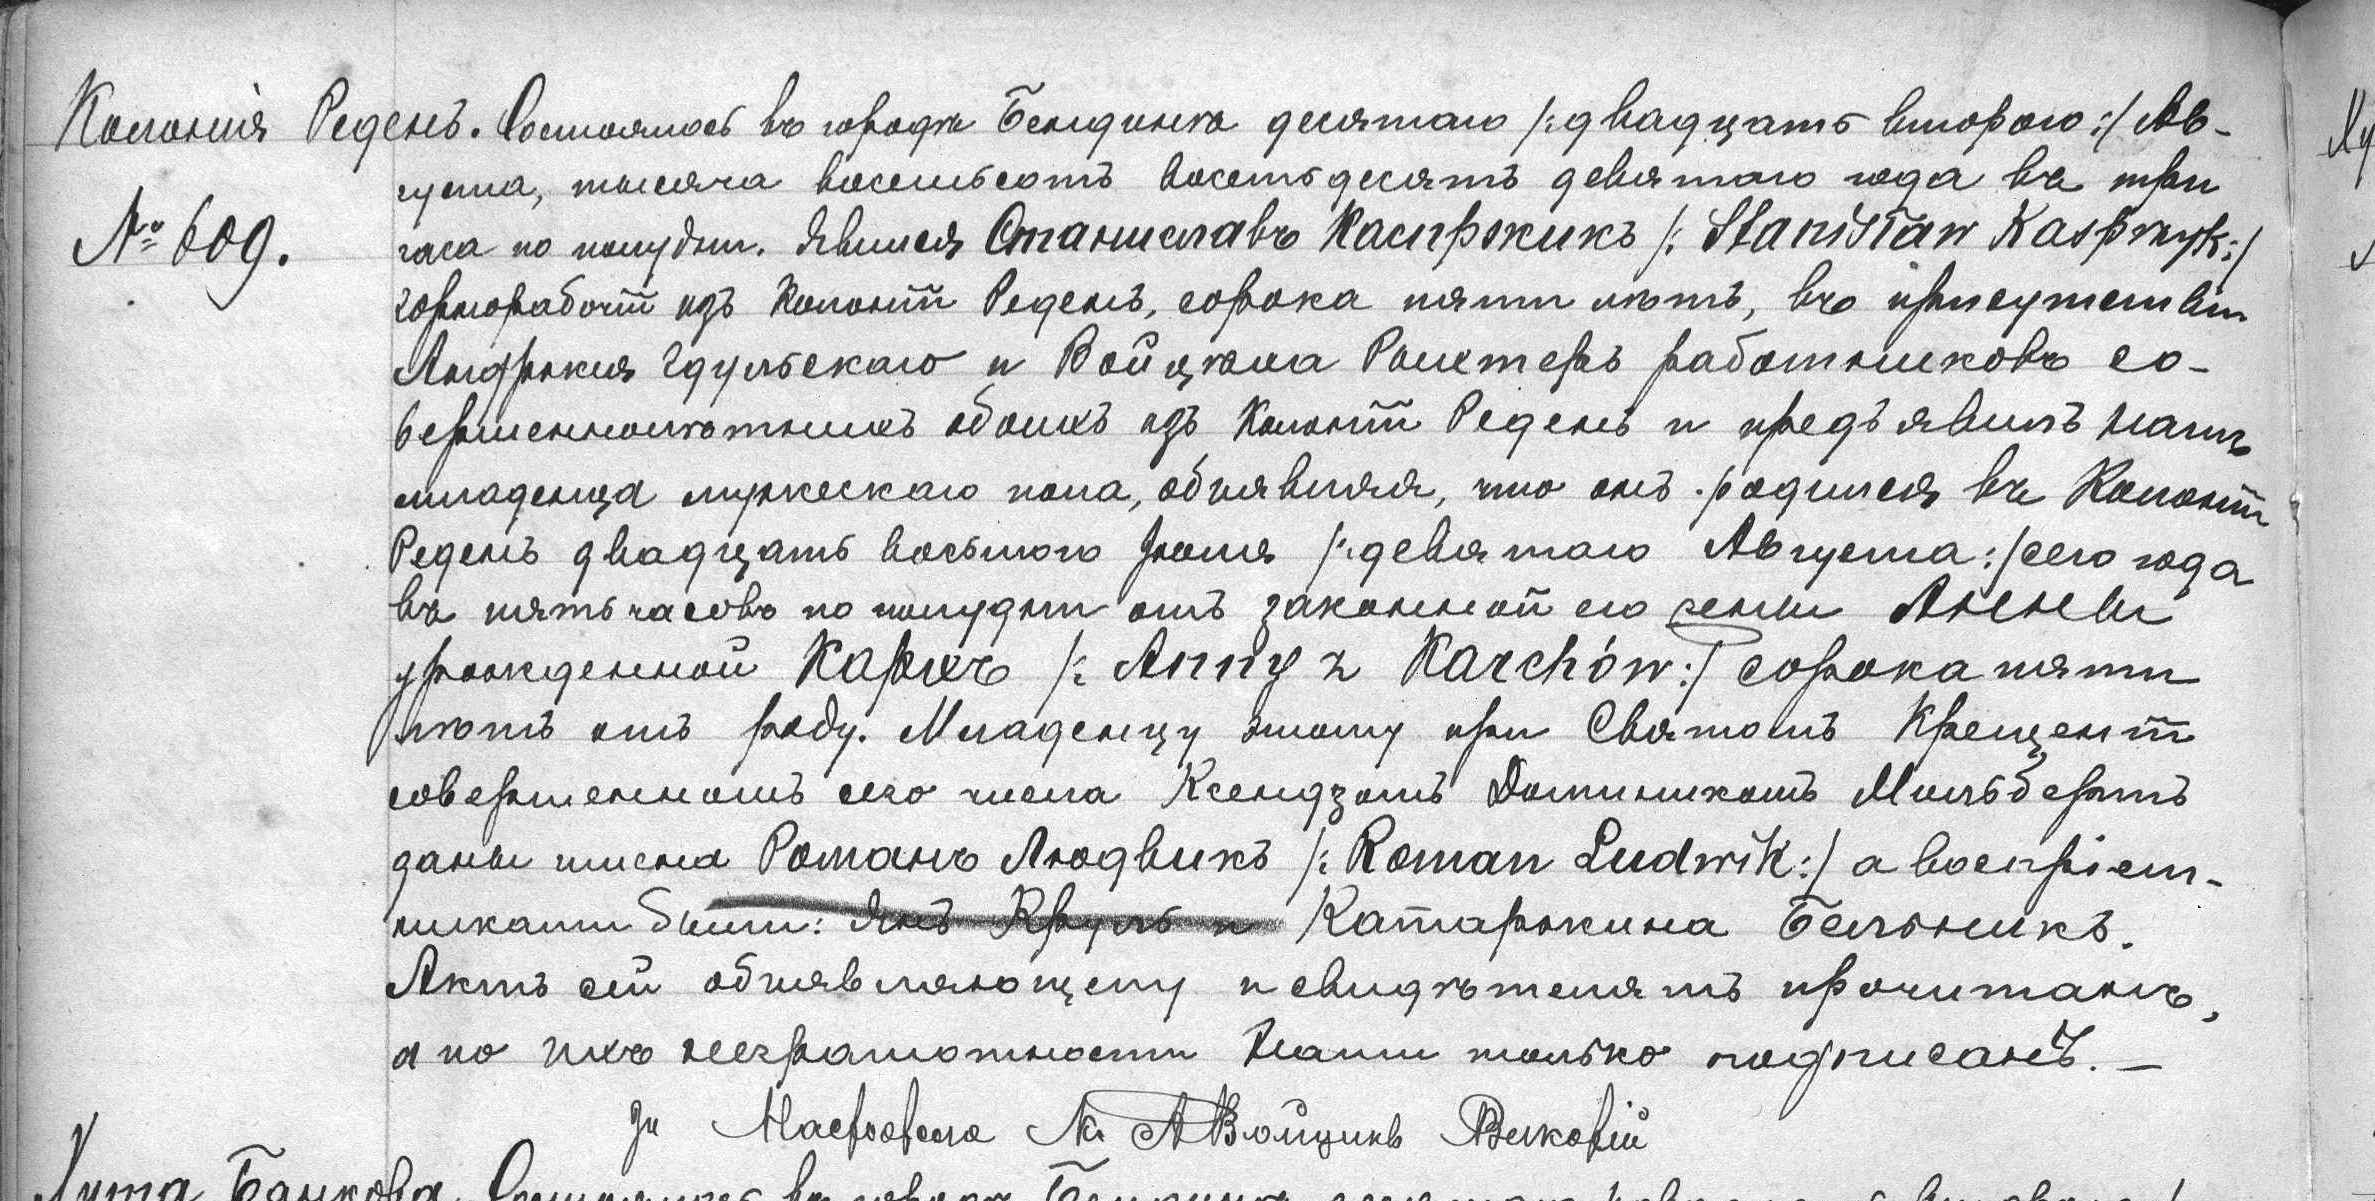 Колонія Реденъ. Состоялось въ городѣ Бендинѣ десятаго /:двадцать втораго:/ Ав-
густа, тысяча восемьсотъ восемьдесятъ девятаго года въ три
№ 609.
часа по полудни. Явился Станиславъ Каспржикъ /: Stanisław Kasprzyk:/
горнорабочій изъ Колоніи Реденъ, сорока пяти лѣтъ, въ присутствіи
Андржея Гдульскаго и Войцѣха Рыхтеръ работниковъ со-
вершеннолѣтнихъ обоихъ изъ Колоніи Реденъ и предъявилъ намъ
младенца мужескаго пола, объявляя, что онъ родился въ Колоніи
Реденъ двадцать восьмого Іюля /:девятаго Августа:/ сего года
въ пять часовъ по полудни отъ законной его жены Анны
урожденной Кархъ /: Anny z Karchów:/ сорока пяти
лѣтъ отъ роду. Младенцу этому при Святомъ Крещеніи
совершенномъ сего числа Ксендзомъ Доминикомъ Мильбертъ
даны имена Романъ Людвикъ /: Roman Ludwik:/ а воспріем-
никами были: Янъ Круль и Катаржина Бельникъ.
Актъ сей объявляющему и свидѣтелямъ прочитанъ,
а по ихъ неграмотности Нами только подписанъ. —
За К. А Войцикъ
Хута Банкова. Состоялось въ городѣ Бендинѣ